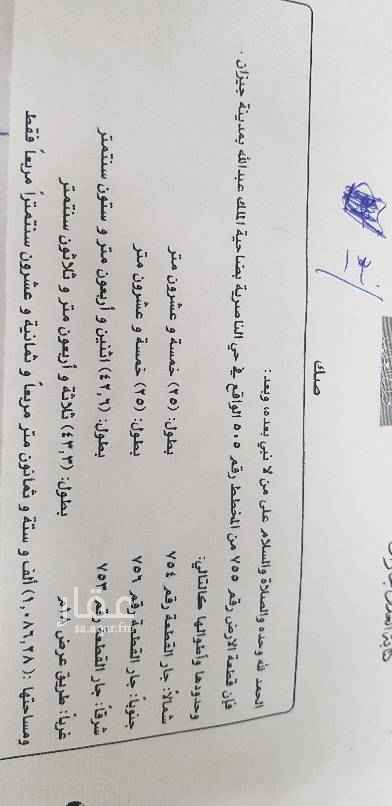 صك
الحمد لله وحده والصلاة والسلام على من لا نبي بعده، وبعد:
فإن قطعة الارض رقم ٧٥٥ من المخطط رقم ٥٠٥ الواقع في حي الناصرية بضاحية الملك عبدالله بمدينة جيزان .
وحدودها وأطوالها كالتالي:
شمالاً: جار القطعة رقم ٧٥٤ بطول: (٢٥) خمسة و عشرون متر
جنوباً: جار القطعة رقم ٧٥٦ بطول: (٢٥) خمسة و عشرون متر
شرقاً: جار القطعة رقم ٧٥٣ بطول: (٤٢,٦) اثنين و أربعون متر و ستون سنتمتر
غرباً: طريق عرض بطول: (٤٣,٣) ثلاثة و أربعون متر و ثلاثون سنتمتر
ومساحتها :(١,٠٨٦,٢٨) ألف و ستة و ثمانون متر مربعاً و ثمانية و عشرون سنتمتراً مربعاً فقط
عقار
sa.aqar.fm